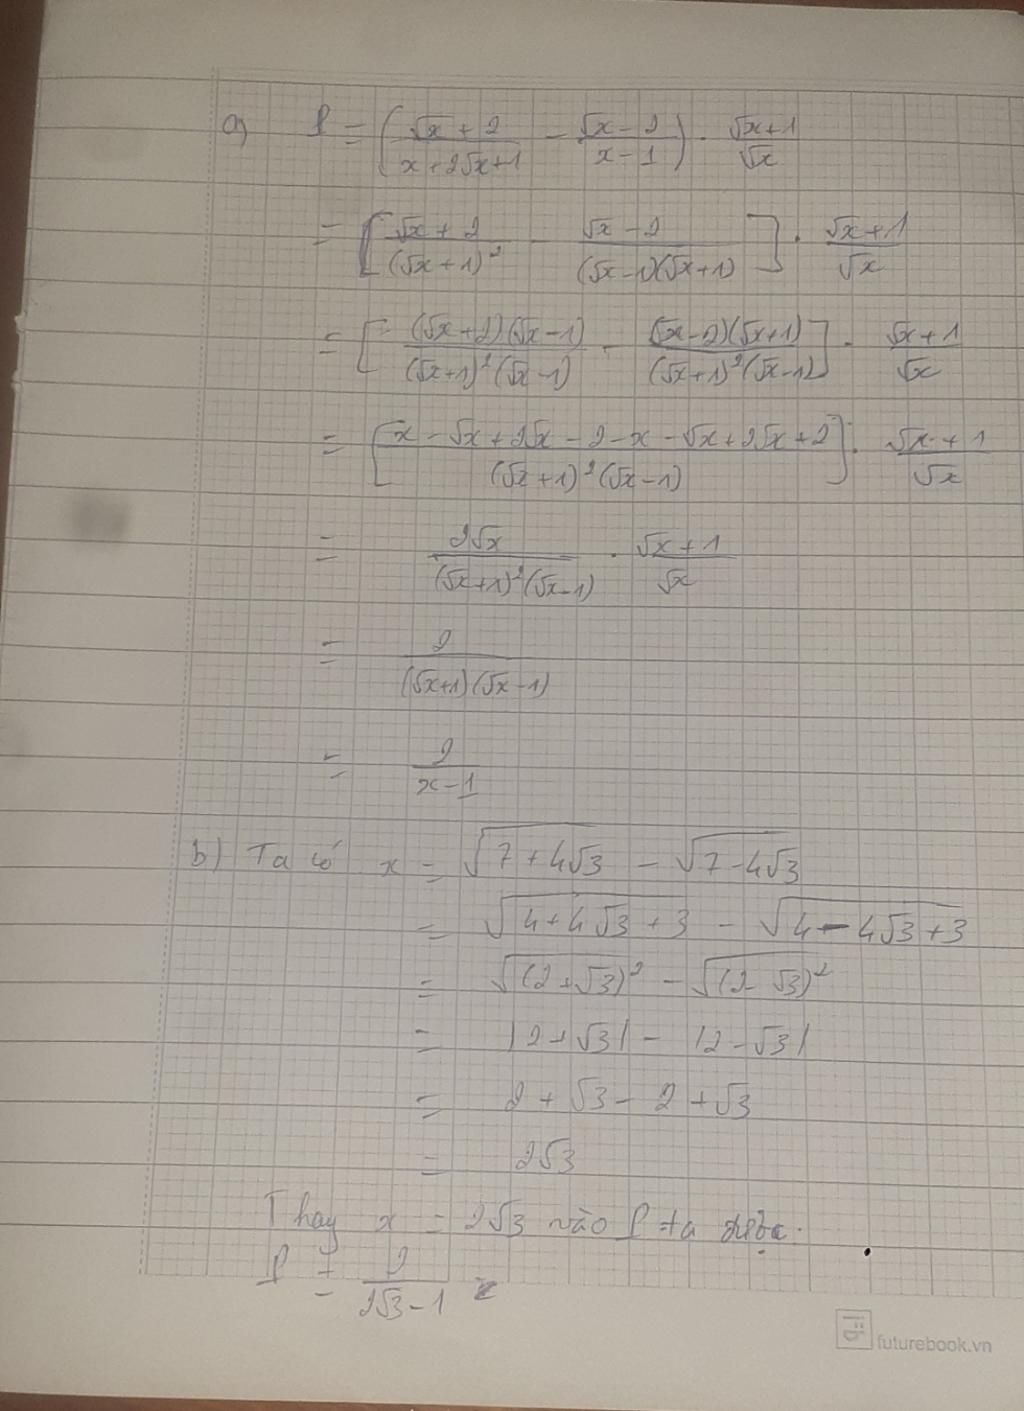 a) P = (√x + 2 / x + 2√x + 1 − √x − 2 / x − 1) . √x + 1 / √x
= [√x + 2 / (√x + 1)² − √x − 2 / (√x − 1)(√x + 1)] . √x + 1 / √x
= [(√x + 2)(√x − 1) / (√x + 1)²(√x − 1) − (√x − 2)(√x + 1) / (√x + 1)²(√x − 1)] . √x + 1 / √x
= [x − √x + 2√x − 2 − x − √x + 2√x + 2 / (√x + 1)²(√x − 1)] . √x + 1 / √x
= 2√x / (√x + 1)²(√x − 1) . √x + 1 / √x
= 2 / (√x + 1)(√x − 1)
= 2 / x − 1
b) Ta có x = √(7 + 4√3) − √(7 − 4√3)
= √(4 + 4√3 + 3) − √(4 − 4√3 + 3)
= √(2 + √3)² − √(2 − √3)²
= |2 + √3| − |2 − √3|
= 2 + √3 − 2 + √3
= 2√3
Thay x = 2√3 vào P ta được.
P = 2 / 2√3 − 1
futurebook.vn